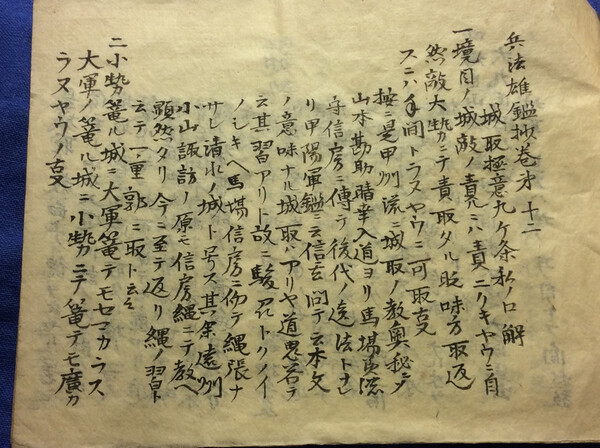 兵法雄鑑抄巻第十二
城取極意九ケ条私ノ口解
一境目ノ城敵ノ責ルニハ責ニクキヤウニ自
然敵大勢ニテ責取タル時味方取返
スニハ手間トラヌヤウニ可取支
按ニ是甲州流ニ城取ノ教奥秘ニメ
山本勘助晴幸入道ヨリ馬場美濃
守信房ニ傳テ後代ノ遺法トナレ
リ甲陽軍鑑ニ云信玄問テ云本文
ノ意味ナル城取ハアリヤ道鬼答テ
云其習アリト故ニ駿州トクノイ
ノシキヘ馬場信房ニ仰テ縄張ナ
サレ清水ノ城ト号ス其余遠州
小山諏訪ノ原モ信房縄ニテ教ヘ
顕然タリ今ニ至テ返リ縄ノ習ト
云テ一重郭ニ取ト云々
二小勢篭ル城ニ大軍篭テモセマカラス
大軍ノ篭ル城ニ小勢ニテ篭テモ廣カ
ラヌヤウノ支